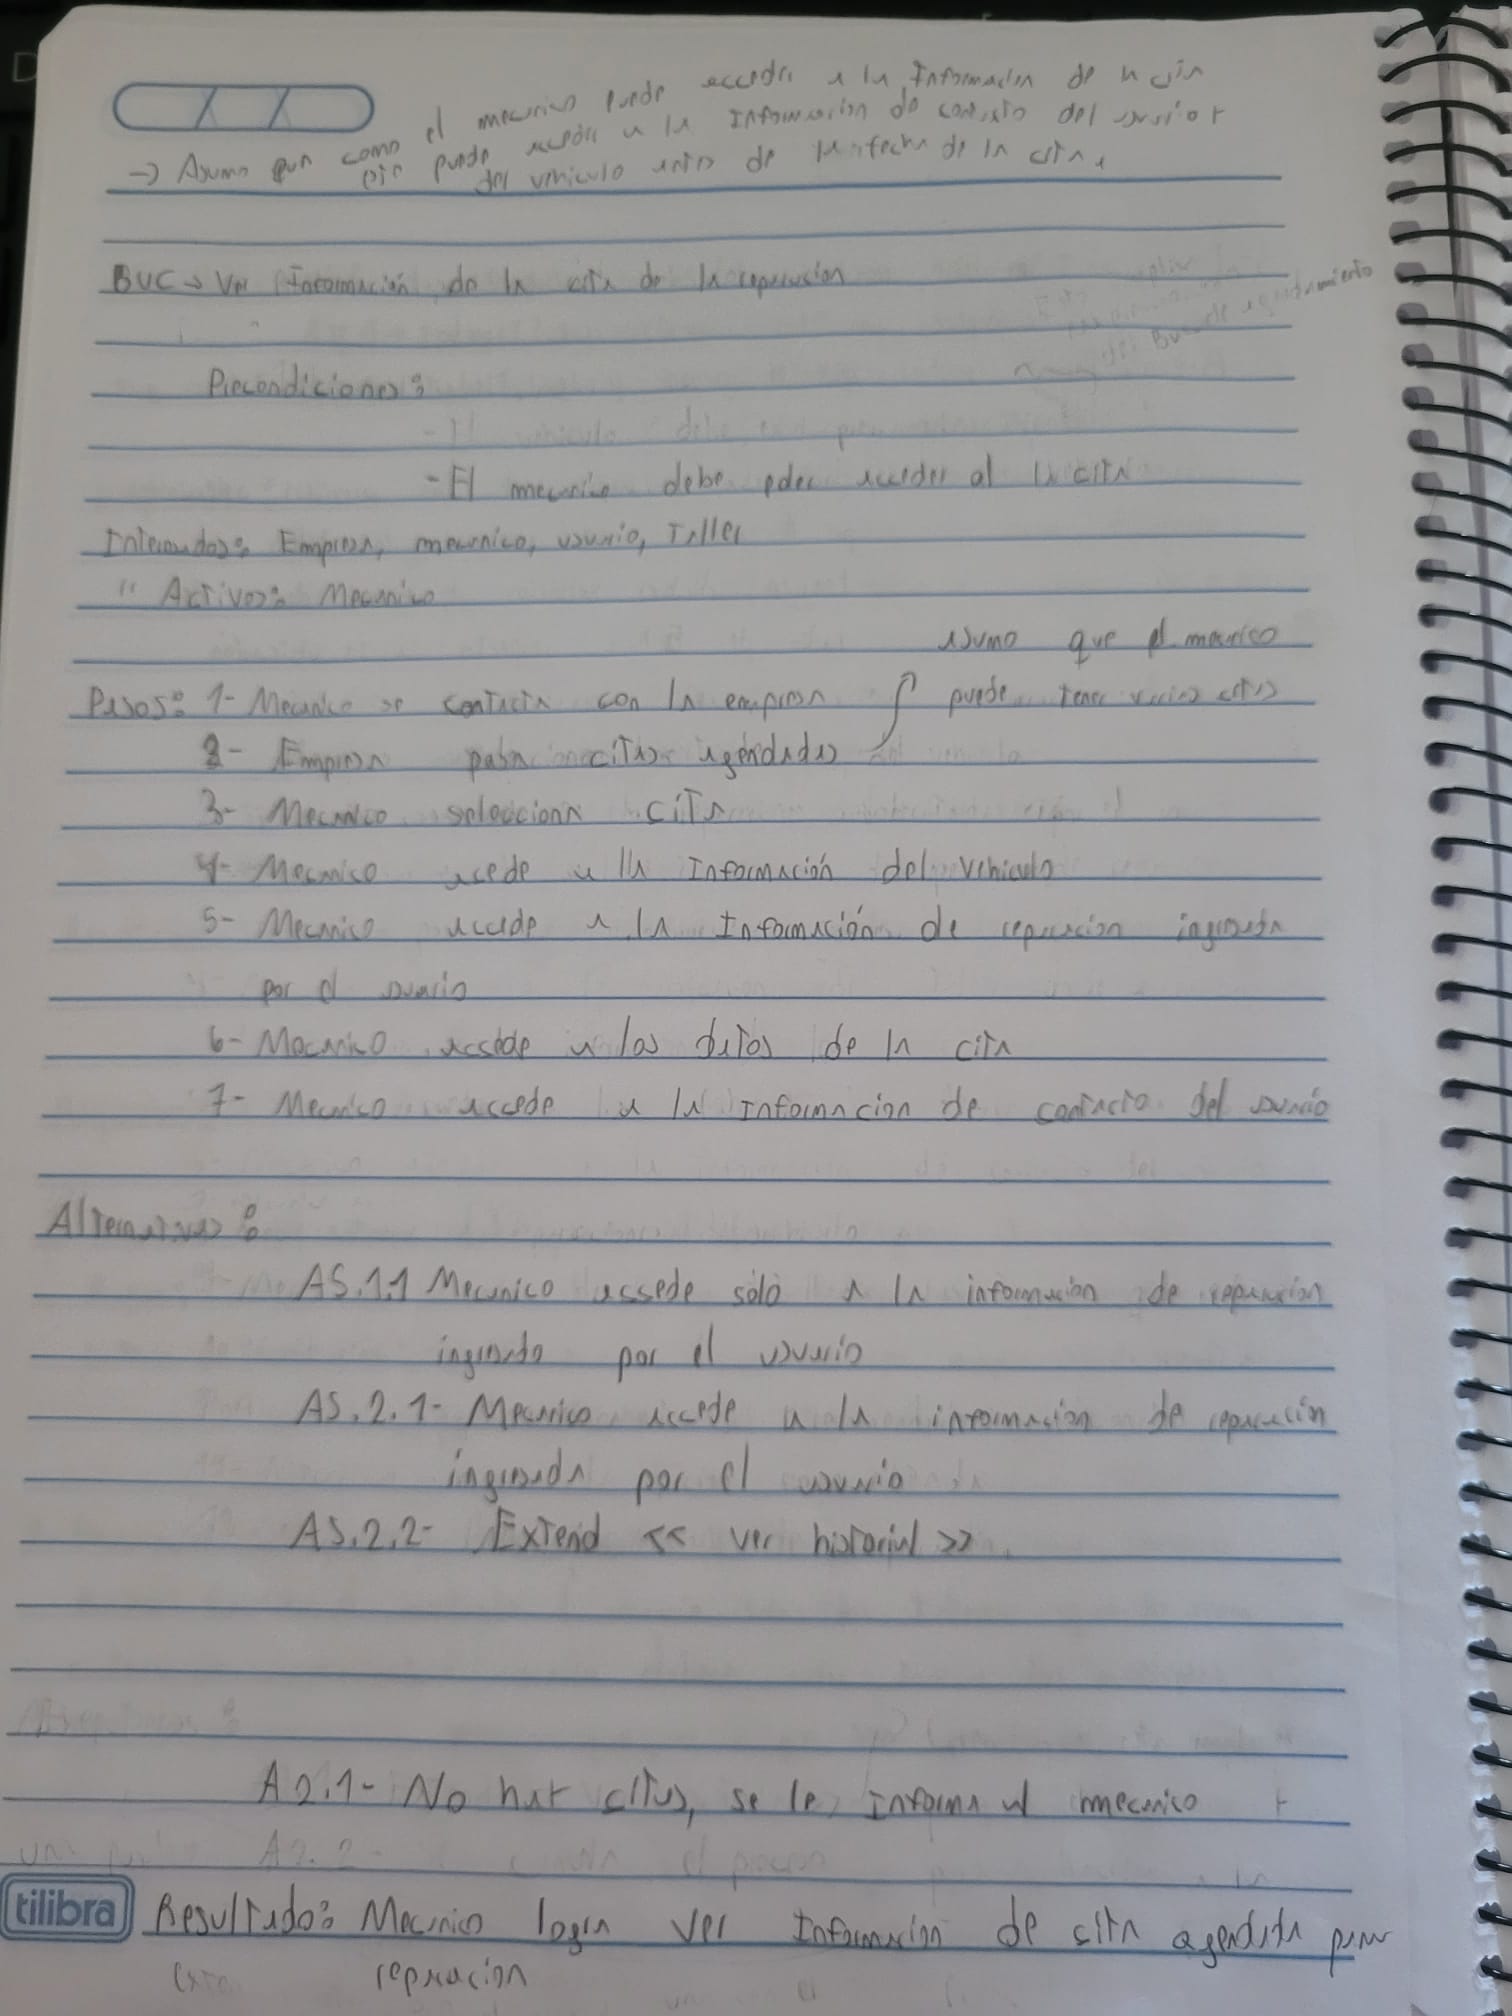 el mecanico puede acceder a la Información de la cita
→ Asumo que como puede acceder a la Información de contacto del usuario y
del vehiculo antes de la fecha de la cita.
BUC → Ver Información de la cita de la reparación
Precondiciones:
- El mecanico debe poder acceder al la cita
Interesados: Empresa, mecanico, usuario, Taller
" Activos: Mecanico
asumo que el mecanico
Pasos: 1- Mecanico se contacta con la empresa puede tener varias citas
2- Empresa citas agendadas
3- Mecanico selecciona cita
4- Mecanico acede a la Información del vehiculo
5- Mecanico accede a la Información de reparacion ingresada
por el usuario
6- Mecanico accede a los datos de la cita
7- Mecanico accede a la Informacion de contacto del usuario
Alternativas:
A5.1.1 Mecanico assede solo a la información de reparación
ingresada por el usuario
A5.2.1- Mecanico accede a la información de reparación
ingresada por el usuario
A5.2.2- Extend << ver historial >>
A2.1- No hay citas, se le informa al mecanico y
tilibra
Resultado: Mecanico logra ver Información de cita agendada para
reparacion